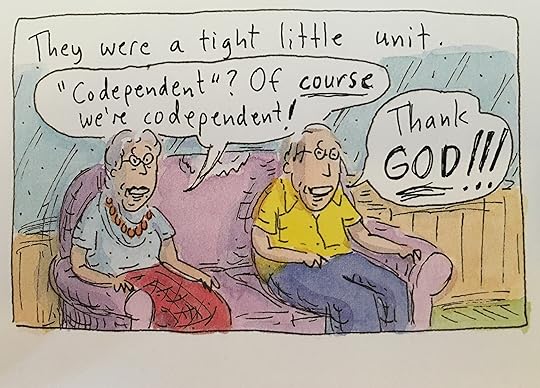 They were a tight little unit.
"Codependent"? Of course
we're codependent!
Thank
GOD!!!